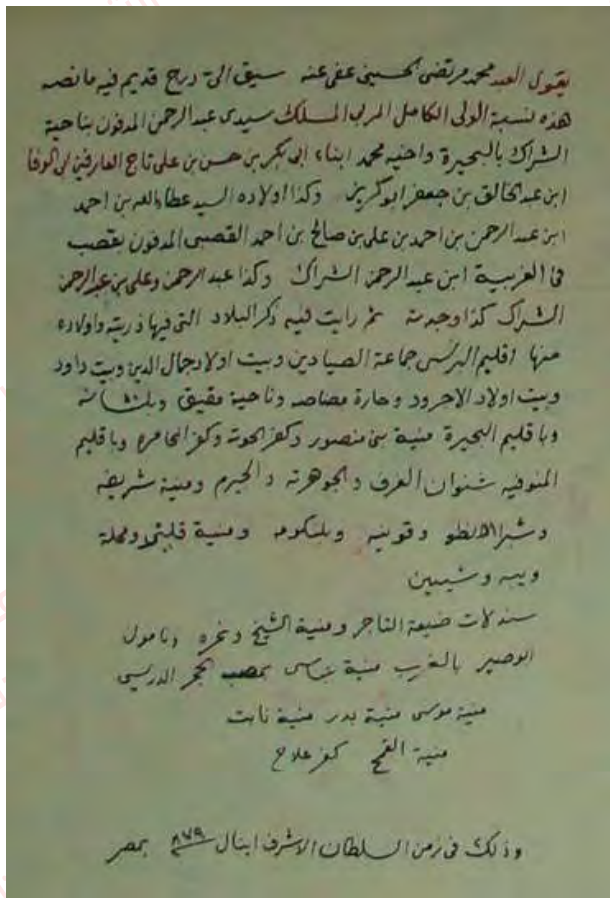 يقول العبد محمد مرتضى الحسيني عفى عنه سيق الى درج قديم فيه مانصه
هذه نسبة الولى الكامل المربى المسلك سيدى عبدالرحمن المدفون بناحية
الشراك بالبحيرة واخيه محمد ابناء ابى بكر بن حسن بن على تاج العارفين ابى الوفا
ابن عبدالخالق بن جعفر ابوكريز وكذا اولاده السيد عطاءالله بن احمد
ابن عبدالرحمن بن احمد بن على بن صالح بن احمد القصبى المدفون بقصب
فى الغربية ابن عبدالرحمن الشراك وكذا عبدالرحمن وعلى بن عبدالرحمن
الشراك كذا وجدته ثم رايت فيه ذكر البلاد التى فيها ذريته واولاده
منها اقليم البرلس جماعة الصيادين وبيت اولاد جمال الدين وبيت داود
وبيت اولاد الاجرود وحارة مصاصه وناحية مقيق
وباقليم البحيرة منية بنى منصور وكفر الحوته وكفر وباقليم
المنوفيه شنوان الغرف والجوهرته ومنية شريفه
وشبرا وقوينه ومنية ومحلة
ويبه وشيبين
سندلات ضيعة التاجر ومنية الشيخ ونمره ونامول
بالغرب منية الحجر
منية موسى منية بدر منية نابت
منية القمح كفر علاج
وذلك فى زمن السلطان الاشرف اينال ٨٧٩ بمصر